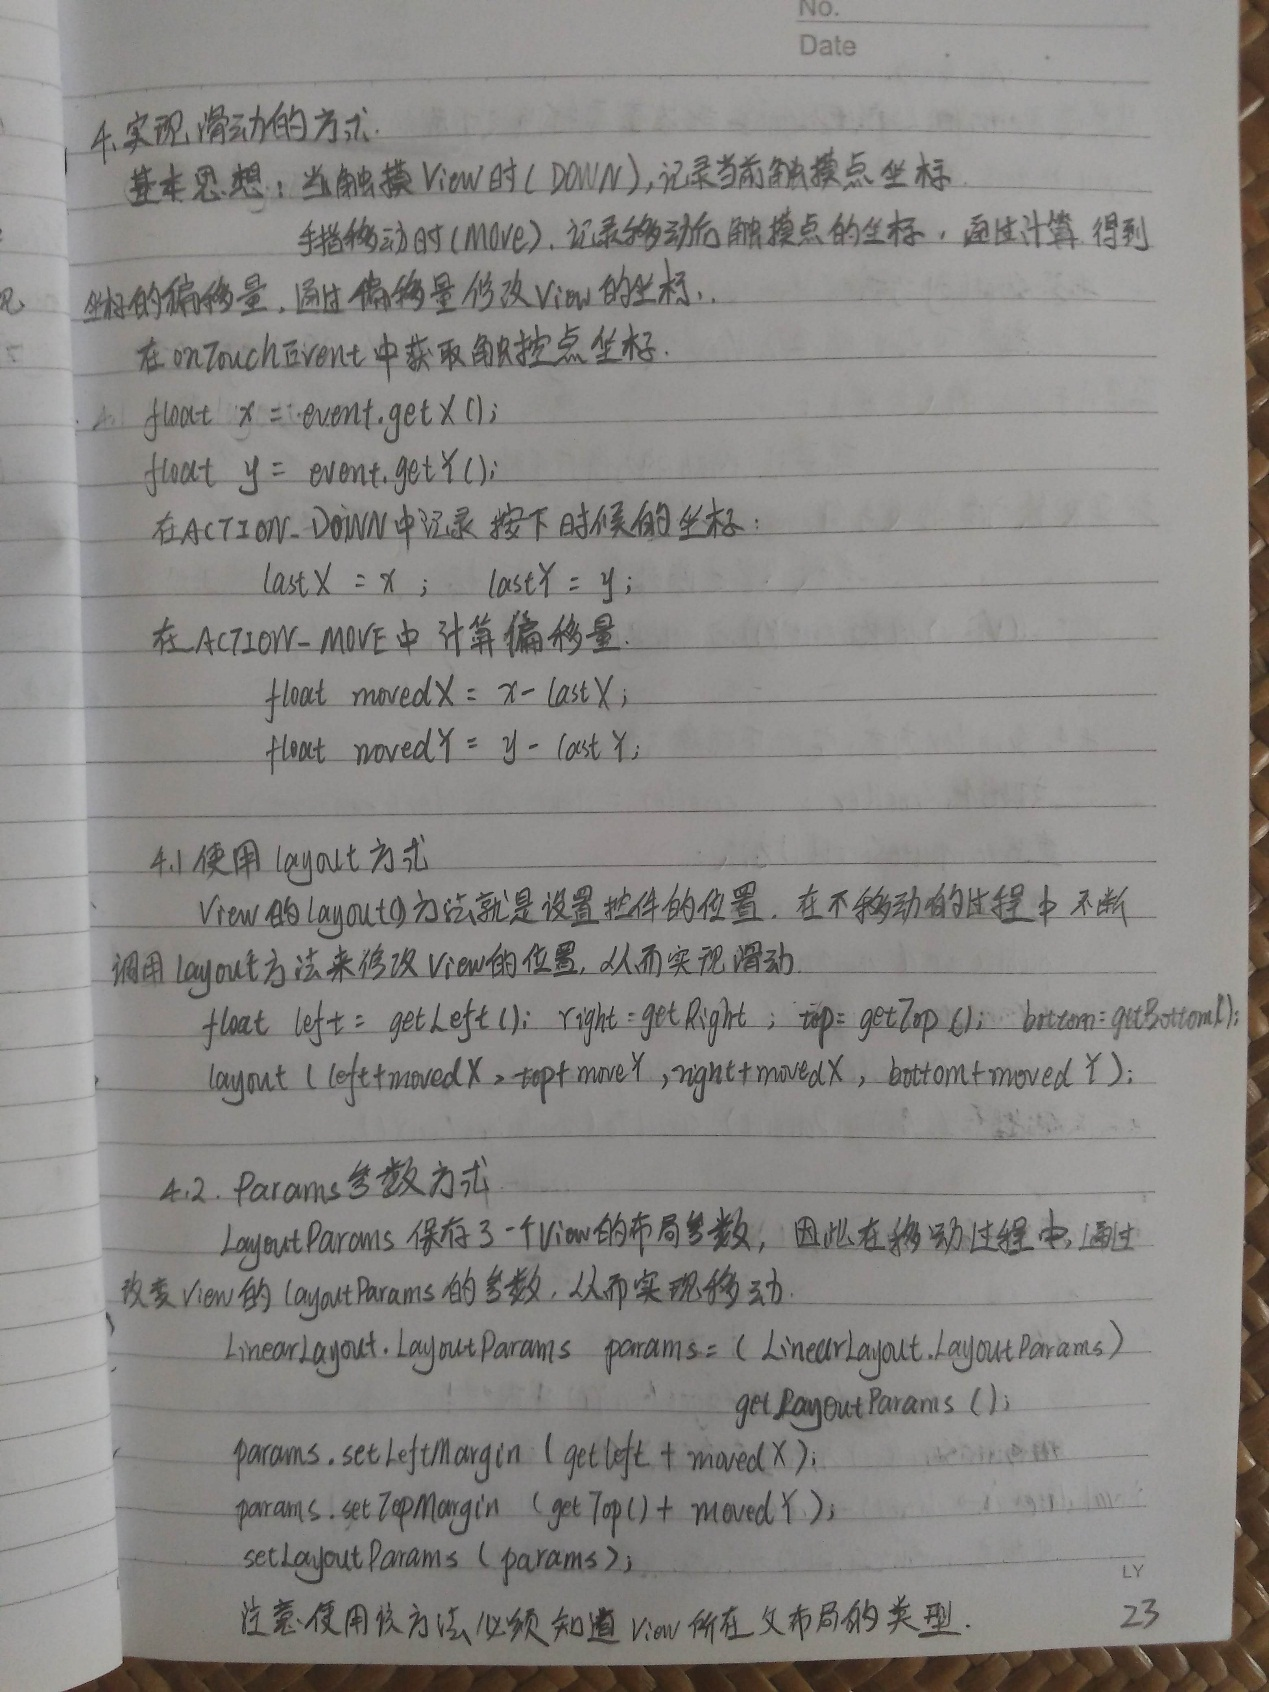 No.
Date
4.实现滑动的方式.
基本思想：当触摸View时(DOWN),记录当前触摸点坐标
手指移动时(MOVE).记录移动后触摸点的坐标，通过计算得到
坐标的偏移量,通过偏移量修改View的坐标.
在onTouchEvent中获取触控点坐标.
float x = event.getX();
float y = event.getY();
在ACTION_DOWN中记录按下时候的坐标：
lastX = x ; lastY = y;
在ACTION_MOVE中计算偏移量.
float movedX = x - lastX;
float movedY = y - lastY;
4.1 使用layout方式
View的layout()方法就是设置控件的位置. 在不移动的过程中不断
调用layout方法来修改View的位置,从而实现滑动.
float left = getLeft(); right = getRight ; top = getTop(); bottom = getBottom();
layout (left+movedX , top+moveY , right+movedX , bottom+movedY);
4.2. Params参数方式
LayoutParams保存了一个View的布局参数, 因此在移动过程中,通过
改变View的layoutParams的参数,从而实现移动.
LinearLayout.LayoutParams params = ( LinearLayout.LayoutParams)
getLayoutParams ();
params.setLeftMargin (getleft + movedX);
params.setTopMargin (getTop() + movedY);
setLayoutParams (params);
注意:使用该方法必须知道View所在父布局的类型.
LY
23